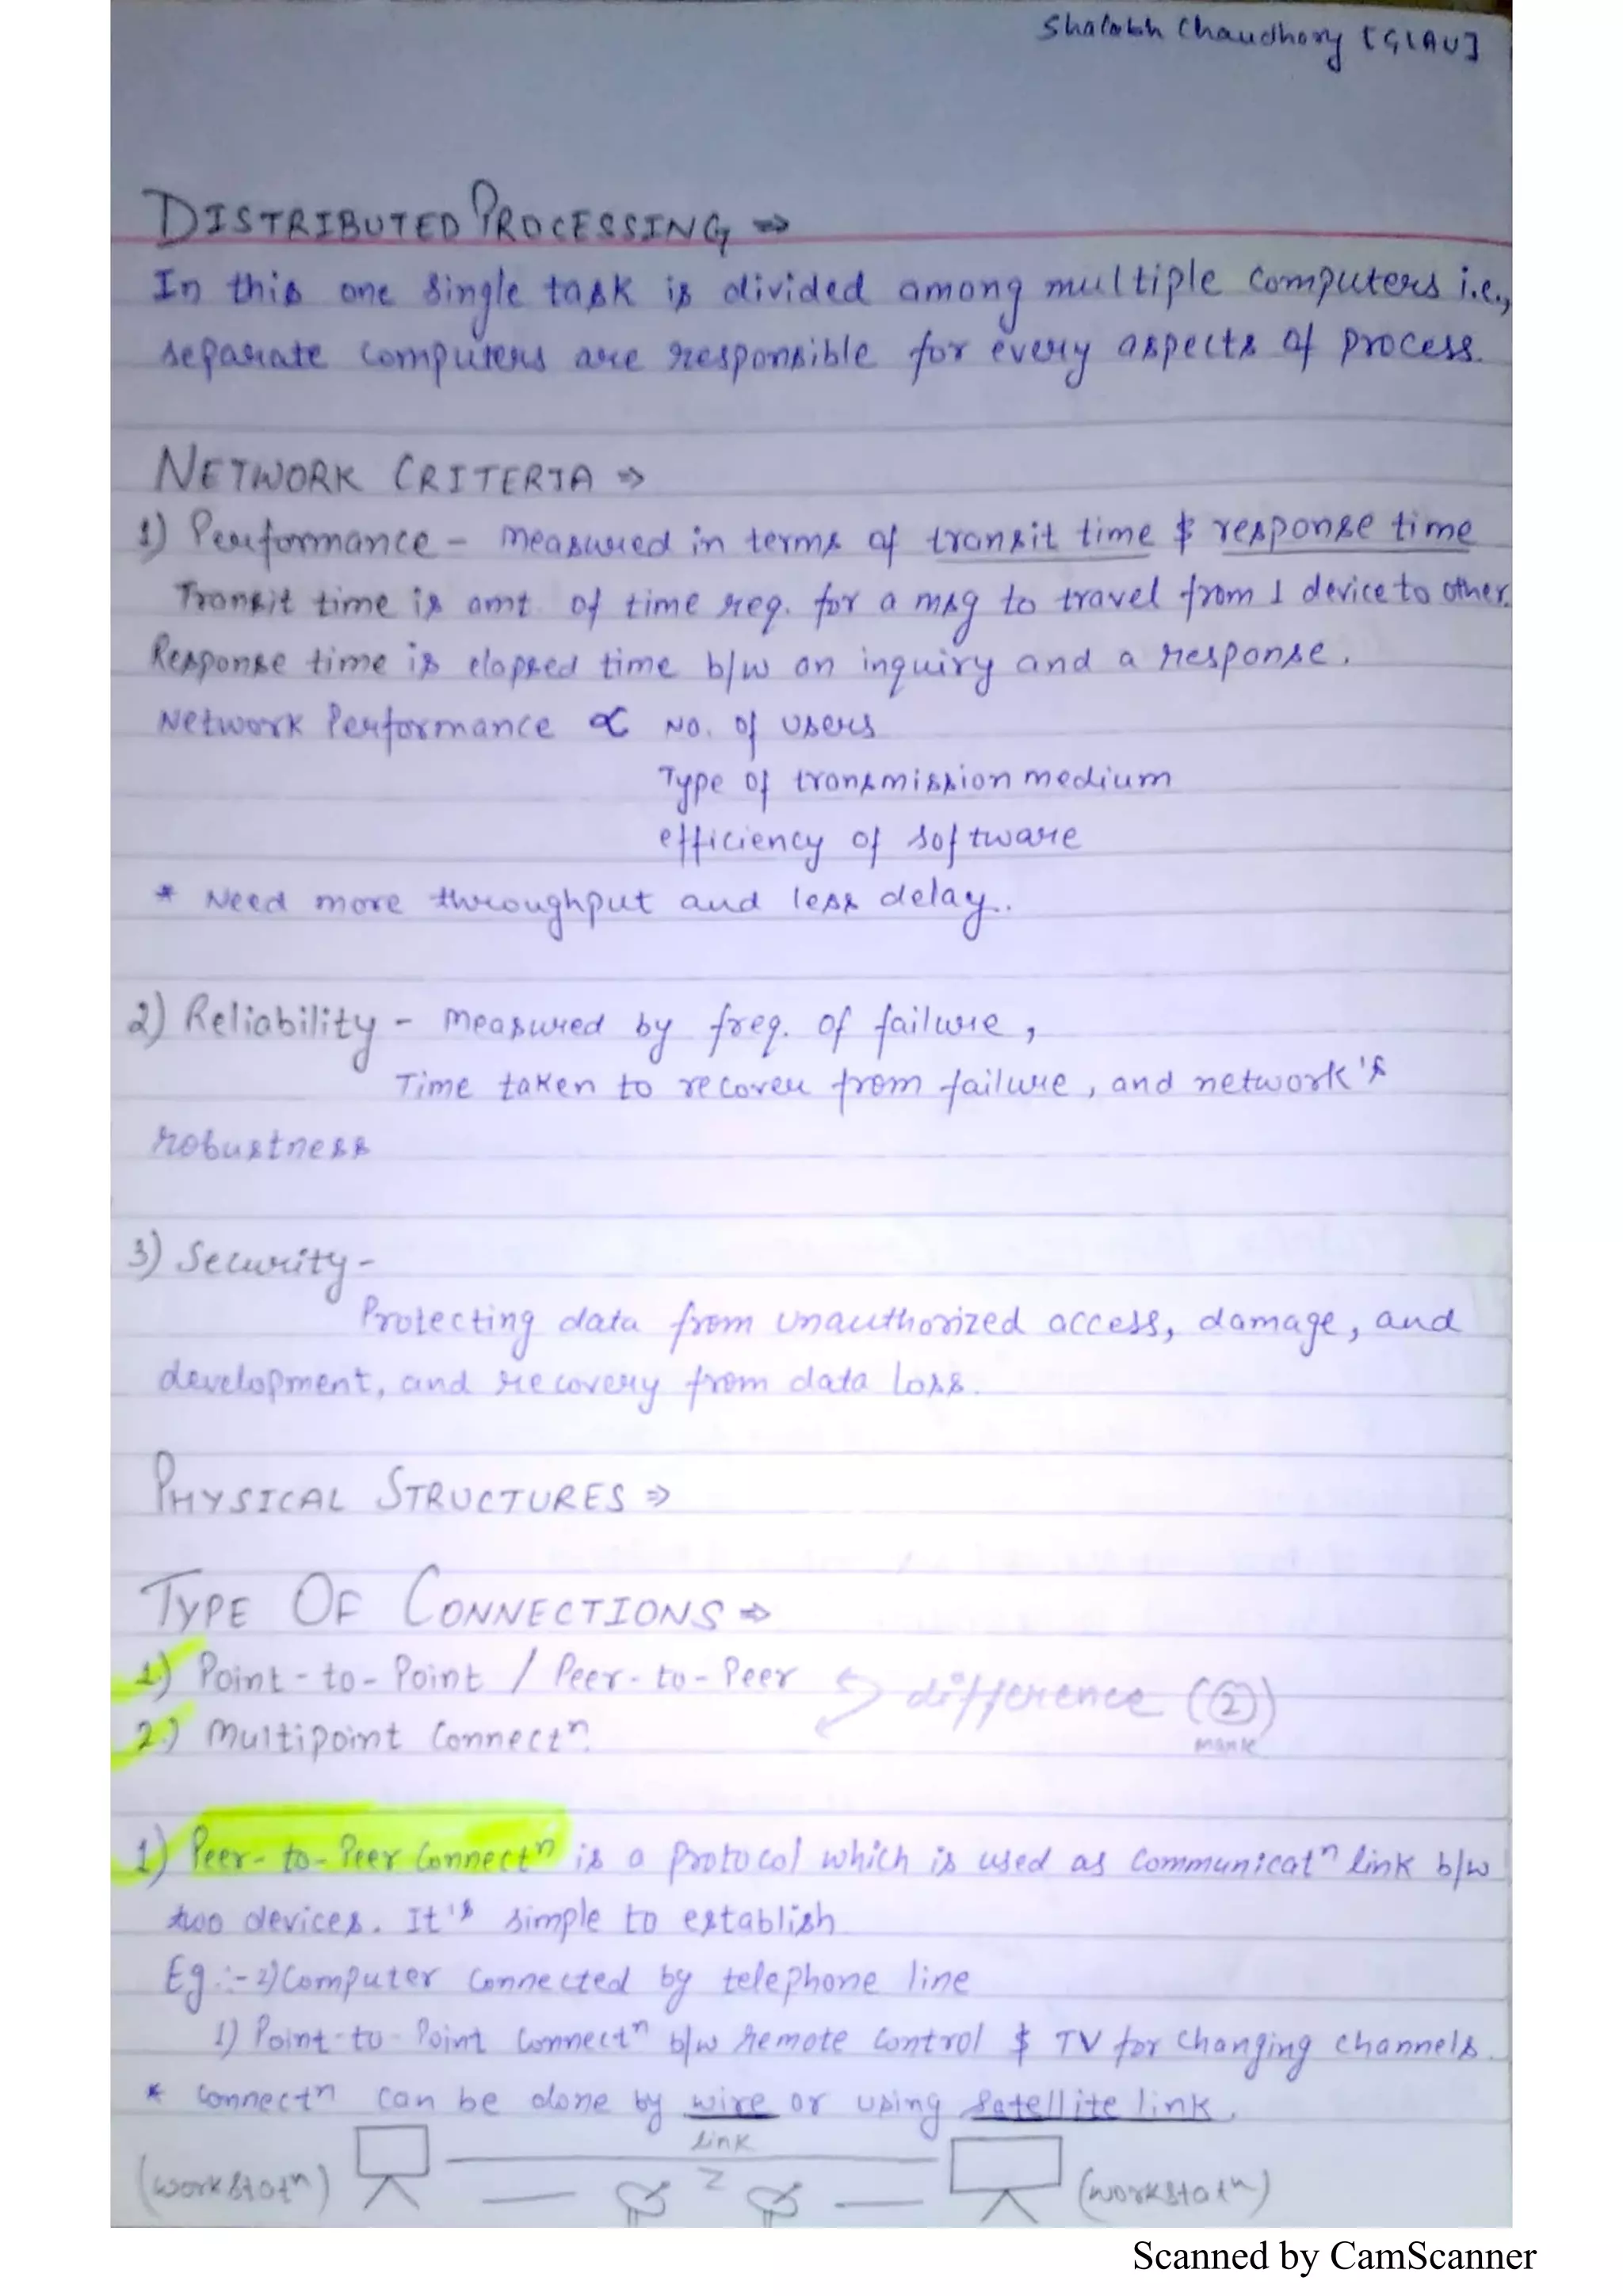 Shalabh Chaudhary [GLAU]
DISTRIBUTED PROCESSING ⇒
In this one single task is divided among multiple computers i.e.,
separate computers are responsible for every aspects of process.
NETWORK CRITERIA ⇒
1) Performance - Measured in terms of transit time & response time
Transit time is amt. of time req. for a msg to travel from 1 device to other.
Response time is elapsed time b/w an inquiry and a response.
Network Performance ∝ No. of users
Type of transmission medium
efficiency of software
* Need more throughput and less delay.
2) Reliability - Measured by freq. of failure,
Time taken to recover from failure, and network's
robustness
3) Security -
Protecting data from unauthorized access, damage, and
development, and recovery from data loss.
PHYSICAL STRUCTURES ⇒
TYPE OF CONNECTIONS ⇒
1.) Point-to-Point / Peer-to-Peer
difference (②)
marks
2.) Multipoint Connectⁿ.
1) Peer-to-Peer Connectⁿ is a protocol which is used as communicatⁿ link b/w
two devices. It's simple to establish
Eg:- 2) Computer connected by telephone line
1) Point-to-Point Connectⁿ b/w remote control & TV for changing channels.
* Connectⁿ can be done by wire or using satellite link.
link
(workstatⁿ) (workstatⁿ)
Scanned by CamScanner